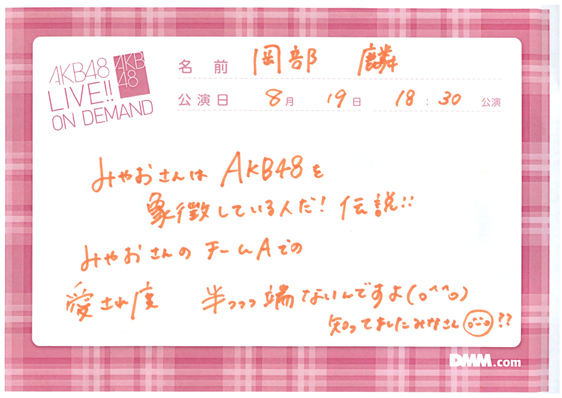 AKB48
LIVE!!
ON DEMAND
AKB
48
名前 岡部 麟
公演日 8月 19日 18:30 公演
みやおさんは AKB48を
象徴している人だ! 伝説!!
みやおさんの チームAでの
愛され度 半っっっ端ないんですよ(o^^o)
知ってましたみなさん ??
DMM.com